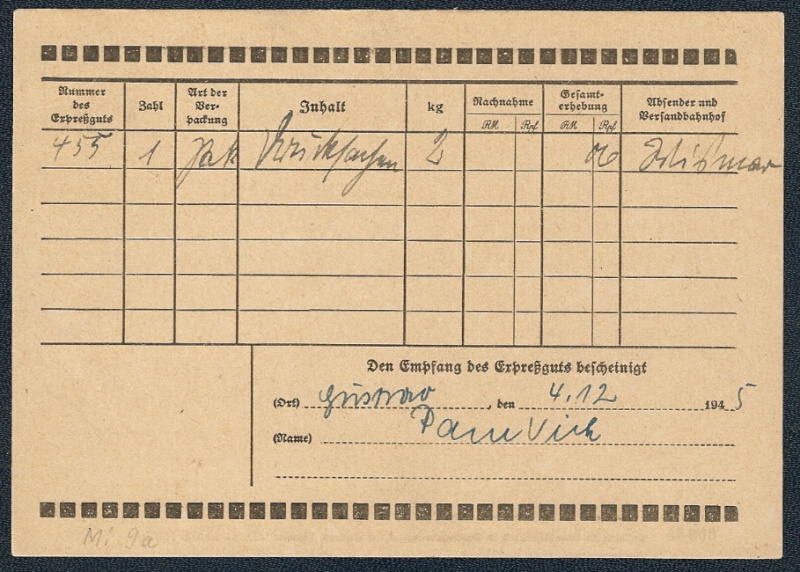 Nummer des Expreßguts Zahl Art der Ver-packung Inhalt kg Nachnahme RM Rpf Gesamt-erhebung RM Rpf Absender und Versandbahnhof
455 1 Pak Drucksachen 2 Wismar
Den Empfang des Expreßguts bescheinigt
(Ort) Güstrow, den 4.12 1945
(Name)
Mi. 9a